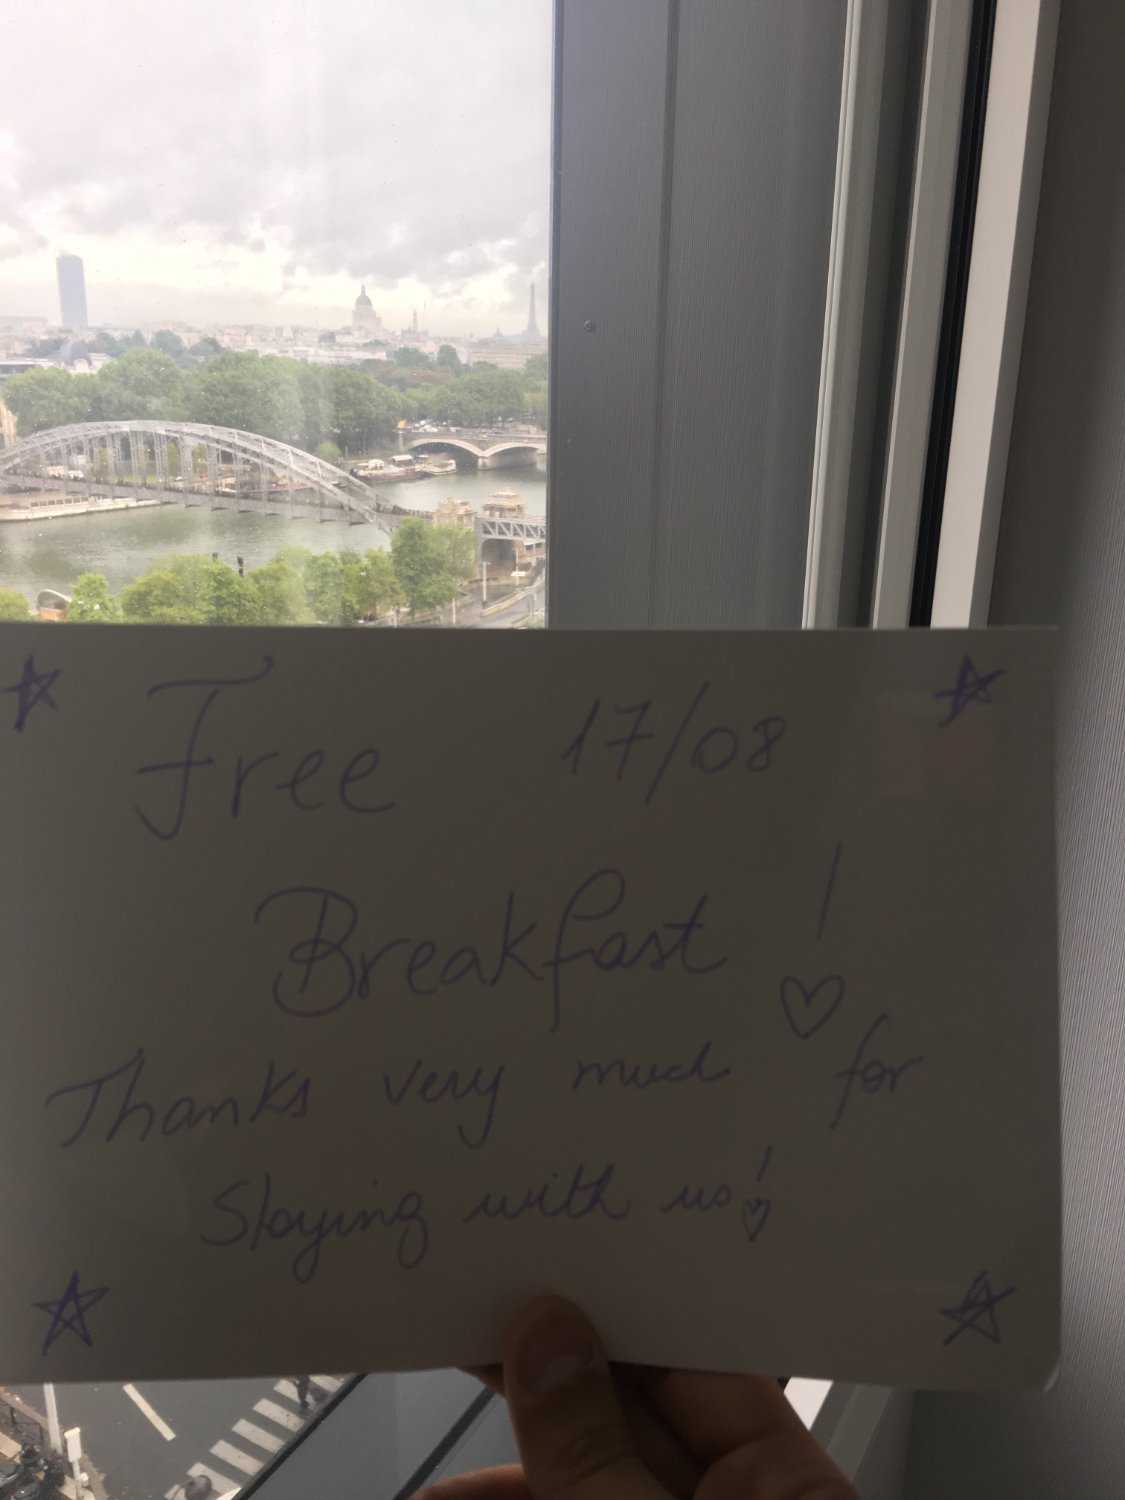 Free 17/08
Breakfast !
Thanks very much for
Staying with us!